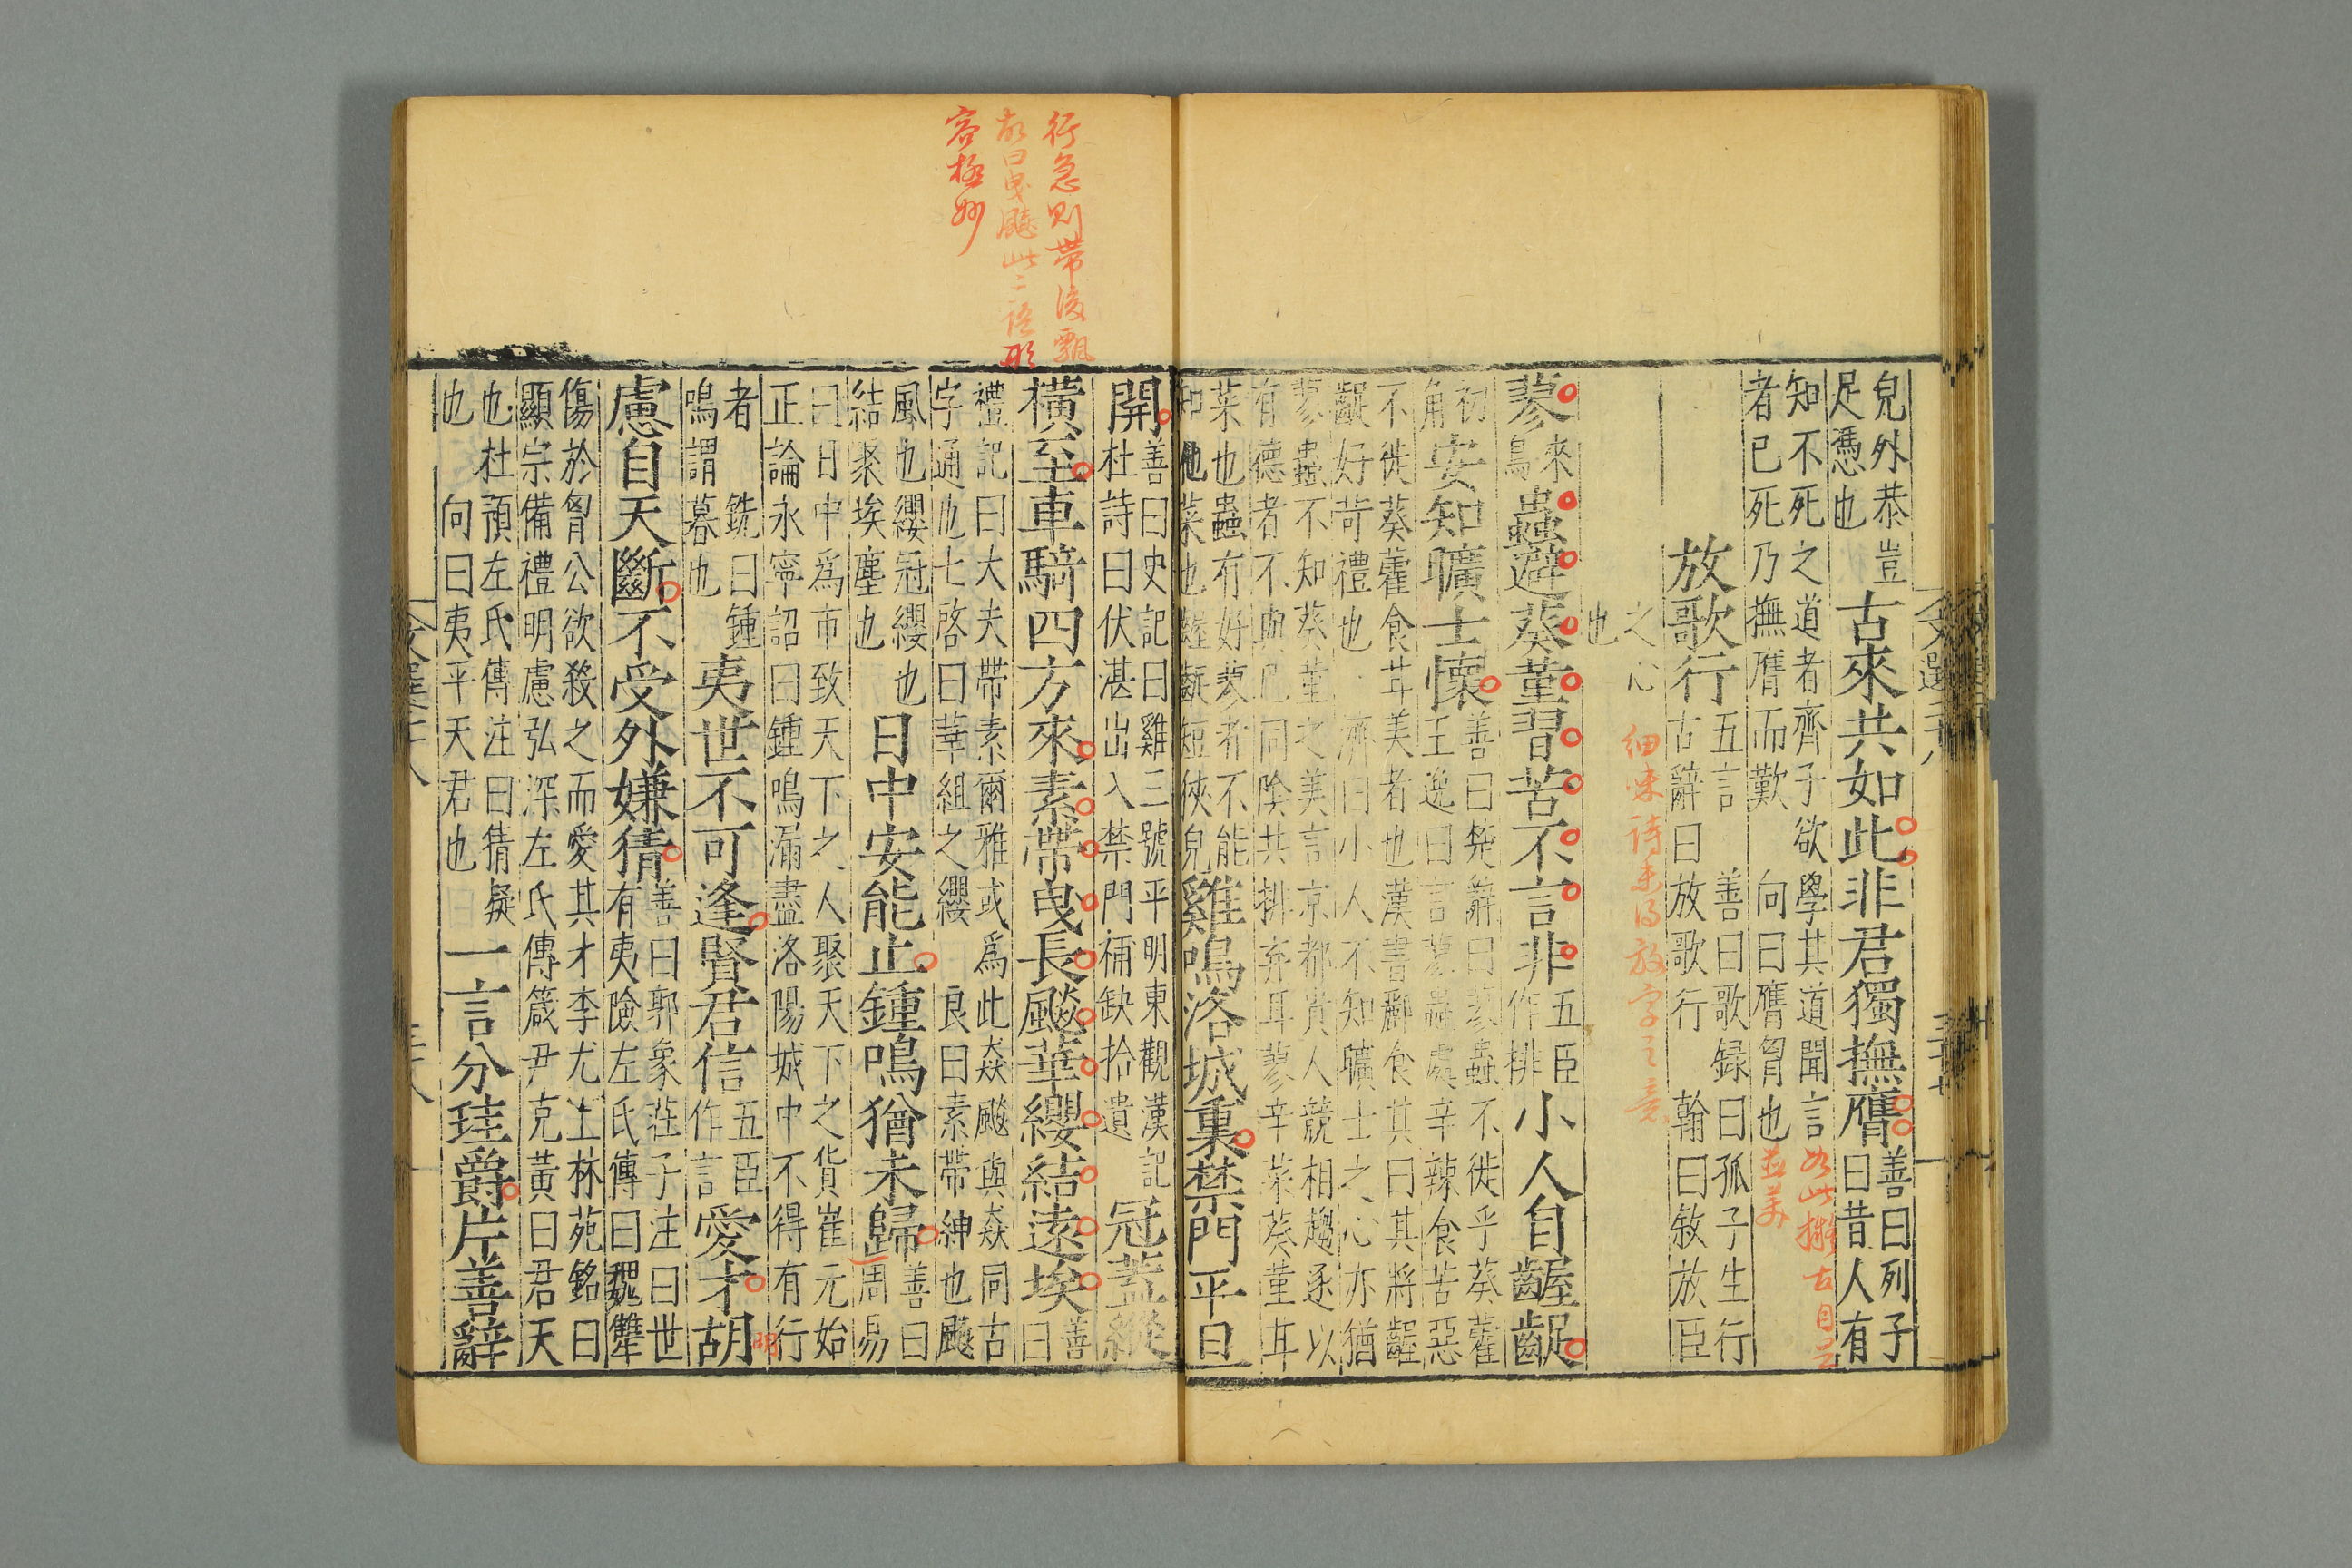 皃外恭 豈
足憑也
古來共如此非君獨撫膺
善曰列子
曰昔人有
知不死之道者齊子欲學其道聞言
者已死乃撫膺而歎 向曰膺胷也
如此擬古自是
並美
放歌行
五言 善曰歌録曰孤子生行
古辭曰放歌行 翰曰敘放臣
之心
也
細味詩來得放字之意
蓼
來
鳥
蟲避葵堇習苦不言非
五臣
作排
小人自齷齪
初
角
安知曠士懷
善曰楚辭曰蓼蟲不徙乎葵藿
王逸曰言蓼蟲處辛辣食苦惡
不徙葵藿食甘美者也漢書酈食其曰其將齷
齪好苛禮也 濟曰小人不知曠士之心亦猶
蓼蟲不知葵堇之美言京都貴人競相趨逐以
有德者不與己同陰共排弃耳蓼辛菜葵堇甘
菜也蟲有好蓼者不能
知他菜也齷齪短狹皃
雞鳴洛城裏禁門平旦
開
善曰史記曰雞三號平明東觀漢記
杜詩曰伏湛出入禁門補缺拾遺
冠蓋縱
橫至車騎四方來素帶曳長飇華纓結遠埃
善
曰
禮記曰大夫帶素爾雅或爲此猋飇與猋同古
字通也七啓曰華組之纓 良曰素帶紳也飇
風也纓冠纓也
結聚埃塵也
日中安能止鍾鳴猶未歸
善曰
周易
曰日中爲市致天下之人聚天下之貨崔元始
正論永寧詔曰鍾鳴漏盡洛陽城中不得有行
者 銑曰鍾
鳴謂暮也
夷世不可逢賢君信
五臣
作言
愛才胡
明
慮自天斷不受外嫌猜
善曰郭象莊子注曰世
有夷險左氏傳曰魏犨
傷於胷公欲殺之而愛其才李尤上林苑銘曰
顯宗備禮明慮弘深左氏傳箴尹克黃曰君天
也杜預左氏傳注曰猜疑
也 向曰夷平天君也
一言分珪爵片善辭
行急則帶後飄
故曰曳飇此二語形
容極妙